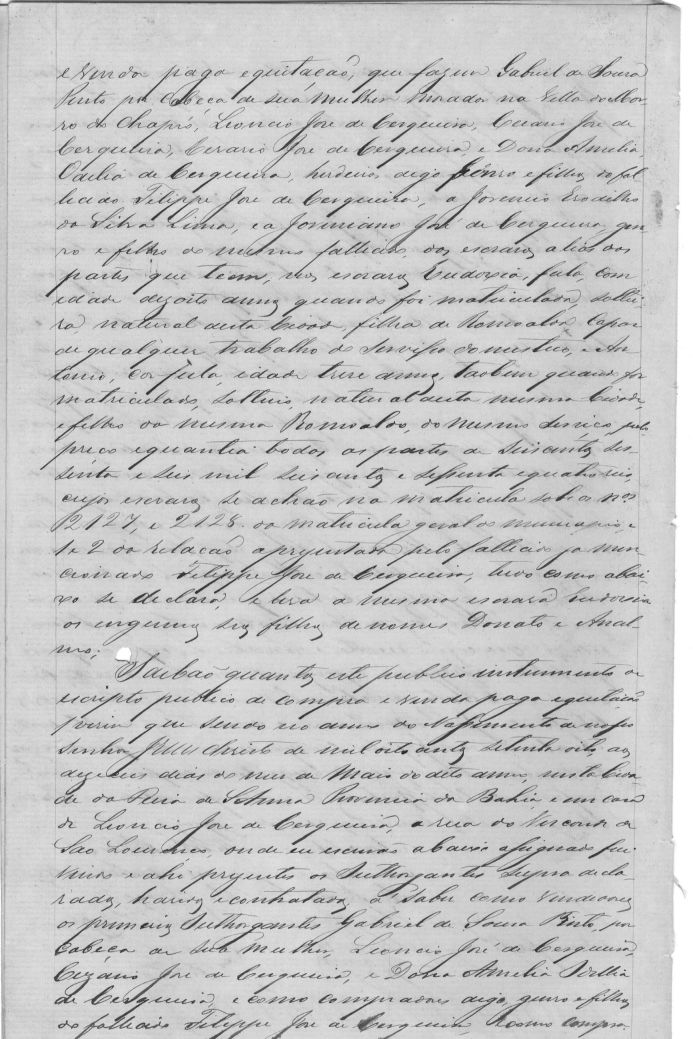 e venda paga equitação, que fazem Gabriel de Souza
Pinto por Cabeça de suá Mulher morador na Villa do Mor
ro do Chapeó, Leoncio José de Cerqueira, Cezario José de
Cerqueira, Cezario José de Cerqueira e Dona Amelia
Odilia de Cerqueira, herdeiros digo genro e filhos do fal
lecido Felippe José de Cerqueira, a Jovencio Erodilho
da Silva Lima, e a Joviniano José de Cerqueira, gen
ro e filho do mesmo fallecido dos escravos alias das
partes que teem, nos escravos Eudoxia, fula, com
idade dezoito annos quando foi matriculada, soltei
ra, natural desta Cidade, filha de Romoalda, Capaz
de qualquer trabalho do Serviço domestico, e An
tonio, cor fula, idade treze annos, tãobem quando foi
matriculado, solteiro, natural desta mesma Cidade,
e filho da mesma Romoalda, do mesmo serviço, pelo
preço e quantia todas as partes de Seiscentos ses
senta e seis mil seiscentos e sessenta e quatro reis,
cujos escravos se achão na matricula sob os nos
2127, e 2128. da matricula geral do municipio, e
1 e 2 da relação apresentada pelo fallecido ja men
cionado Felippe José de Cerqueira, tudo como abai
xo se declara, e terá a mesma escrava Eudoxia
os ingenuos seus filhos de nomes Donato e Anal
mo;
Saibão quantos este publico instrumento de
escripto publico de compra e venda paga equitação
virem que sendo no anno do Nascimento de nosso
Senhor Jesus Christo de mil oito centos setenta oito aos
dezeseis dias do mez de Maio do dito anno, nesta Cida
de da Feira de Santa Anna Provincia da Bahia e em casa
de Leoncio José de Cerqueira, a rua do Visconde de
São Lourenço, onde eu escrivão abaixo assignado fui
vindo e ahi presentes os Outhorgantes supra decla
rados, havidos e contratados, a Saber como Vendedores
os primeiros Outhorgantes Gabriel de Souza Pinto, por
Cabeça de sua Mulher, Leoncio José de Cerqueira,
Cezario José de Cerqueira, e Dona Amelia Odilia
de Cerqueira, e como compradores digo, genro e filhos
do fallecido Felippe José de Cerqueira, e como compra-